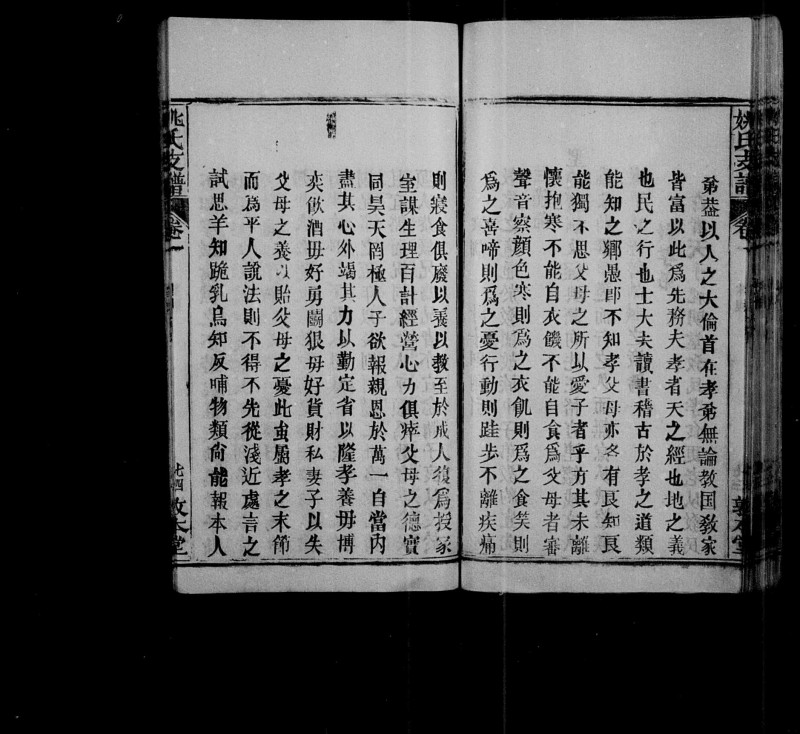 姚氏支譜
卷一
敦本堂
弟蓋以人之大倫首在孝弟無論敎国敎家
皆富以此爲先務夫孝者天之經也地之義
也民之行也士大夫讀書稽古於孝之道類
能知之鄉愚卽不知孝父母亦各有良知良
能獨不思父母之所以愛子者乎方其未離
懷抱寒不能自衣饑不能自食爲父母者審
聲音察顏色寒則爲之衣飢則爲之食笑則
爲之喜啼則爲之憂行動則跬步不離疾痛
則寢食俱廢以養以教至於成人復爲授家
室謀生理百計經營心力俱瘁父母之德實
同昊天罔極人子欲報親恩於萬一自當內
盡其心外竭其力以勤定省以隆孝養毋博
奕飲酒毋好勇鬬狠毋好貨財私妻子以失
父母之養以貽父母之憂此虽屬孝之末節
而爲平人說法則不得不先從淺近處言之
試思羊知跪乳烏知反哺物類尙能報本人
姚氏支譜
卷一
敦本堂